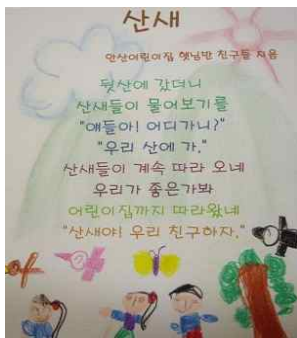 산새
안산어린이집 햇님반 친구들 지음
뒷산에 갔더니
산새들이 물어보기를
"얘들아! 어디가니?"
"우리 산에 가."
산새들이 계속 따라 오네
우리가 좋은가봐
어린이집까지 따라왔네
"산새야! 우리 친구하자."